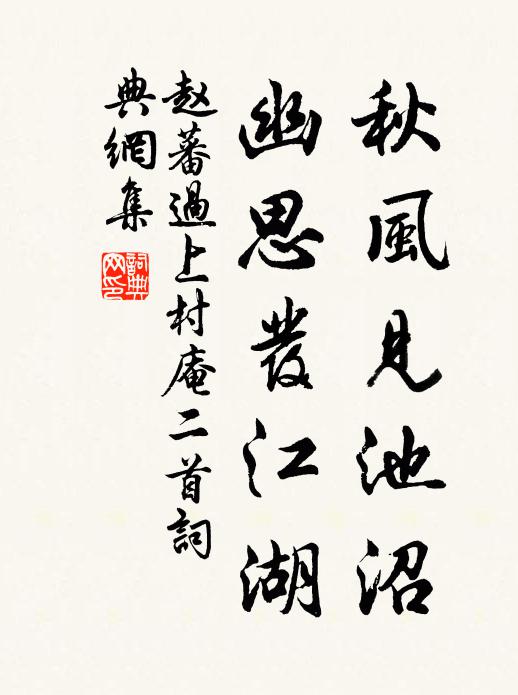 秋風見池沼
幽思發江湖
赵蕃過上村庵二首詞
典網集
詞典
网印